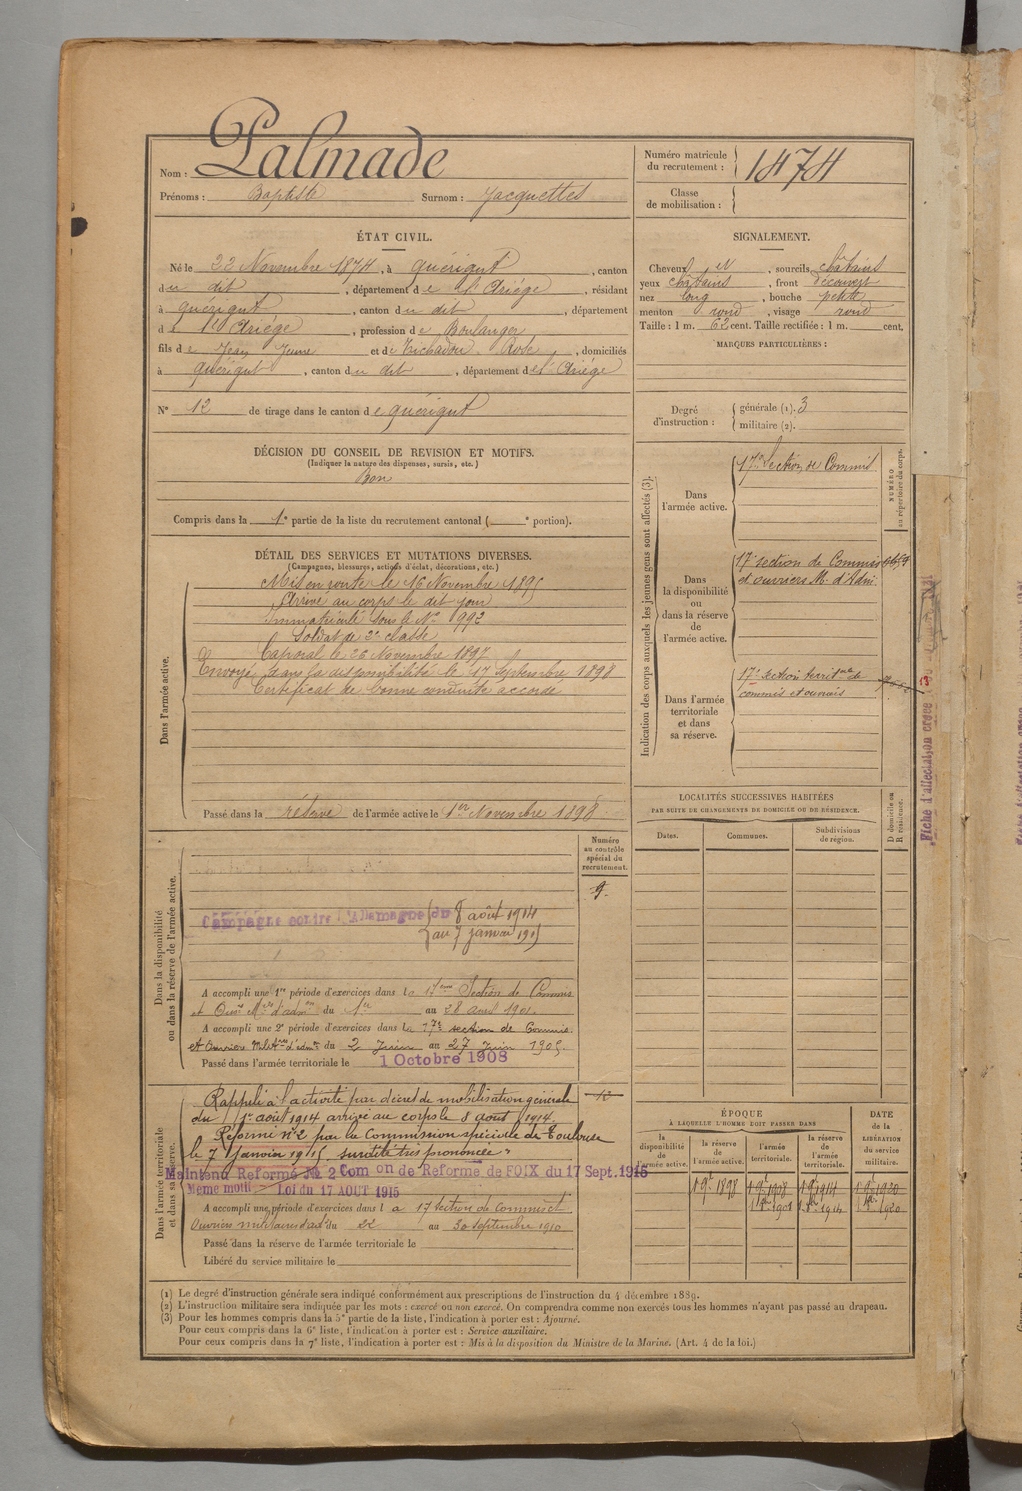 Nom : Palmade
Prénoms : Baptiste Surnom : Jacquettes
Numéro matricule du recrutement : 1474
Classe de mobilisation :
ÉTAT CIVIL.
Né le 22 Novembre 1874, à Quérigut, canton
du dit, département de l'Ariège, résidant
à Quérigut, canton du dit, département
de l'Ariège, profession de Boulanger
fils de Jean Jeune et de Trichadou Rose, domiciliés
à Quérigut, canton du dit, département de l'Ariège
N° 12 de tirage dans le canton de Quérigut
SIGNALEMENT.
Cheveux et, sourcils châtains
yeux châtains, front découvert
nez long, bouche petite
menton rond, visage rond
Taille : 1 m. 62 cent. Taille rectifiée : 1 m. cent.
MARQUES PARTICULIÈRES :
Degré d'instruction : générale (1). 3
militaire (2).
DÉCISION DU CONSEIL DE REVISION ET MOTIFS.
(Indiquer la nature des dispenses, sursis, etc.)
Bon
Compris dans la 1e partie de la liste du recrutement cantonal ( e portion).
DÉTAIL DES SERVICES ET MUTATIONS DIVERSES.
(Campagnes, blessures, actions d'éclat, décorations, etc.)
Dans l'armée active.
Mis en route le 16 Novembre 1895
Arrivé au corps le dit jour
Immatriculé sous le N° 992
Soldat de 2e classe
Caporal le 26 Novembre 1897
Envoyé dans la disponibilité le 17 Septembre 1898
Certificat de bonne conduite accordé
Passé dans la réserve de l'armée active le 1er Novembre 1898
Indication des corps auxquels les jeunes gens sont affectés (3).
NUMÉRO au répertoire du corps.
Dans l'armée active.
17e Section de Commis
Dans la disponibilité ou dans la réserve de l'armée active.
17e section de Commis
et ouvriers M. d'Adm.
Dans l'armée territoriale et dans sa réserve.
17e section territle de
commis et ouvriers
Fiche d'affectation créée
LOCALITÉS SUCCESSIVES HABITÉES
PAR SUITE DE CHANGEMENTS DE DOMICILE OU DE RÉSIDENCE.
Dates. Communes. Subdivisions de région.
D domicile ou R résidence.
Dans la disponibilité ou dans la réserve de l'armée active.
Numéro au contrôle spécial du recrutement.
9
Campagne contre l'Allemagne du 8 août 1914
au 7 janvier 1915
A accompli une 1re période d'exercices dans la 17eme Section de Commis
et Ouvrs Mres d'admon du 1er au 28 avril 1901.
A accompli une 2e période d'exercices dans la 17e section de Commis
et Ouvriers Militres d'admon du 2 Juin au 27 Juin 1905.
Passé dans l'armée territoriale le 1 Octobre 1908
Dans l'armée territoriale et dans sa réserve.
Rappelé à l'activité par décret de mobilisation générale
du 1er août 1914 arrivé au corps le 8 août 1914.
Réformé n°2 par la Commission spéciale de Toulouse
le 7 Janvier 1915 "surdité très prononcée"
Maintenu Réformé № 2 Comon de Réforme de FOIX du 17 Sept. 1915
Même motif Loi du 17 AOUT 1915
A accompli une période d'exercices dans la 17 section de Commis et
Ouvriers militaires d'ad du 22 au 30 septembre 1910
Passé dans la réserve de l'armée territoriale le
Libéré du service militaire le
ÉPOQUE
À LAQUELLE L'HOMME DOIT PASSER DANS
la disponibilité de l'armée active. la réserve de l'armée active. l'armée territoriale. la réserve de l'armée territoriale.
DATE de la LIBÉRATION du service militaire.
1 9e 1898 1 9e 1908 1 9e 1914 1 9e 1920
(1) Le degré d'instruction générale sera indiqué conformément aux prescriptions de l'instruction du 4 décembre 1889.
(2) L'instruction militaire sera indiquée par les mots : exercé ou non exercé. On comprendra comme non exercés tous les hommes n'ayant pas passé au drapeau.
(3) Pour les hommes compris dans la 5e partie de la liste, l'indication à porter est : Ajourné.
Pour ceux compris dans la 6e liste, l'indication à porter est : Service auxiliaire.
Pour ceux compris dans la 7e liste, l'indication à porter est : Mis à la disposition du Ministre de la Marine. (Art. 4 de la loi.)